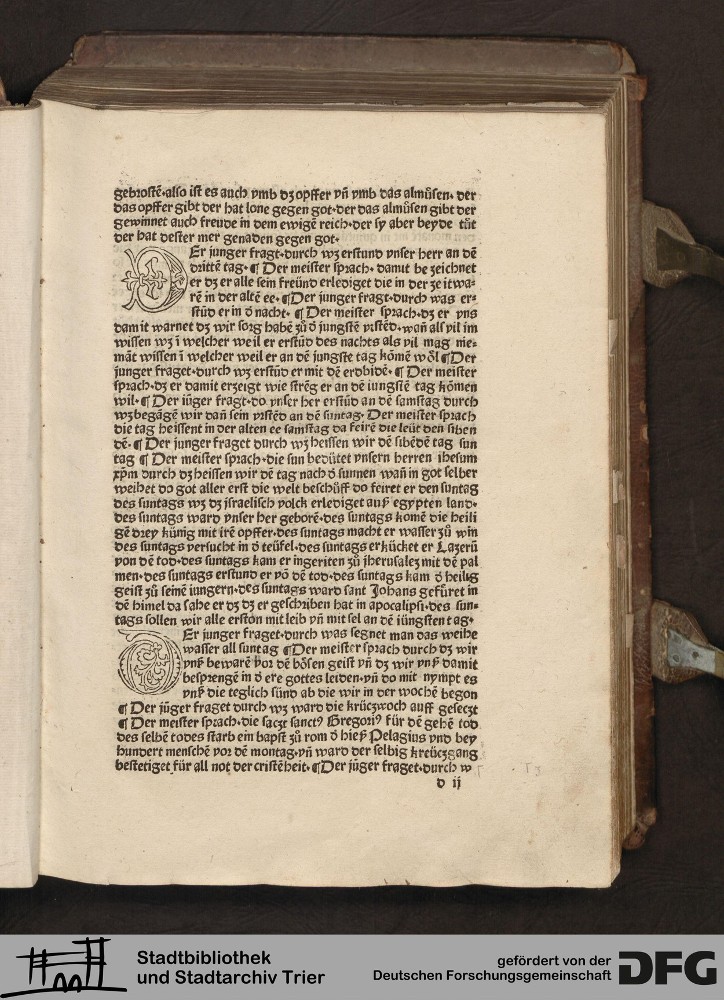 gebrostē·also ist es auch vmb dʒ opffer vn̄ vmb das almůsen· der
das opffer gibt der hat lone gegen got·der das almůsen gibt der
gewinnet auch freude in dem ewigē reich·der sy aber beyde tůt
der hat dester mer genaden gegen got·
DEr junger fragt·durch wʒ erstund vnser herr an dē
drittē tag·¶ Der meister sprach· damit be zeichnet
er dʒ er alle sein freünd erlediget die in der ze itwa⸗
rē in der altē ee·¶Der junger fragt·durch was er⸗
stůd er in d̄ nacht· ¶ Der meister sprach·dʒ er vns
damit warnet dʒ wir sorg habē zů d̄ jungstē vrstēd·wan̄ als vil im
wissen wʒ ī welcher weil er erstůd des nachts als vil mag nie⸗
māt wissen ī welcher weil er an dē jungste tag kōmē wȯl ¶Der
junger fraget·durch wʒ erstůd er mit dē erdbidē·¶ Der meister
sprach·dʒ er damit erzeigt wie strēg er an dē iungstē tag kōmen
wil·¶ Der jūger fragt·do vnser her erstūd an dē samstag durch
wʒ begāgē wir dan̄ sein vrstēd an dē suntag· Der meister sprach
die tag heissent in der alten ee samstag da feirē die leüt den siben
dē·¶ Der junger fraget durch wʒ heissen wir dē sibēdē tag sun
tag ¶ Der meister sprach·die sun bedütet vnsern herren ihesum
xp̄m durch dʒ heissen wir dē tag nach d̄ sunnen wan̄ in got selber
weihet do got aller erst die welt beschüff do feiret er den suntag
des suntags wʒ dʒ israelisch volck erlediget auß egypten land·
des suntags ward vnser her geborē·des suntags komē die heili
gē drey künig mit irē opffer·des suntags macht er wasser zů win
des suntags versucht in d̄ teüfel·des suntags erkücket er Lazerū
von dē tod·des suntags kam er ingeriten zů jherusaleʒ mit dē pal
men·des suntags erstund er vō dē tod·des suntags kam d̄ heilig
geist zů seinē iungern·des suntags ward sant Johans gefüret in
dē himel da sahe er dʒ dʒ er geschriben hat in apocalipsi·des sun⸗
tags sollen wir alle erston mit leib vn̄ mit sel an dē iüngsten tag·
DEr junger fraget·durch was segnet man das weihe
wasser all suntag ¶Der meister sprach durch dʒ wir
vnß bewarē vor dē bȯsen geist vn̄ dʒ wir vnß damit
besprengē in d̄ ere gottes leiden·vn̄ do mit nympt es
vnß die teglich sünd ab die wir in der wochē begon
¶ Der jūger fraget durch wʒ ward die krüczwoch auff geseczt
¶ Der meister sprach·die saczt sanctꝰ Gregoriꝰ für dē gehē tod
des selbē todes starb ein bapst zů rom d̄ hieß Pelagius vnd bey
hundert menschē vor dē montag·vn̄ ward der selbig kreüczgang
bestetiget für all not der cristēheit·¶Der jūger fraget·durch w
d ij
Stadtbibliothek
und Stadtarchiv Trier
gefördert von der
Deutschen Forschungsgemeinschaft
DFG